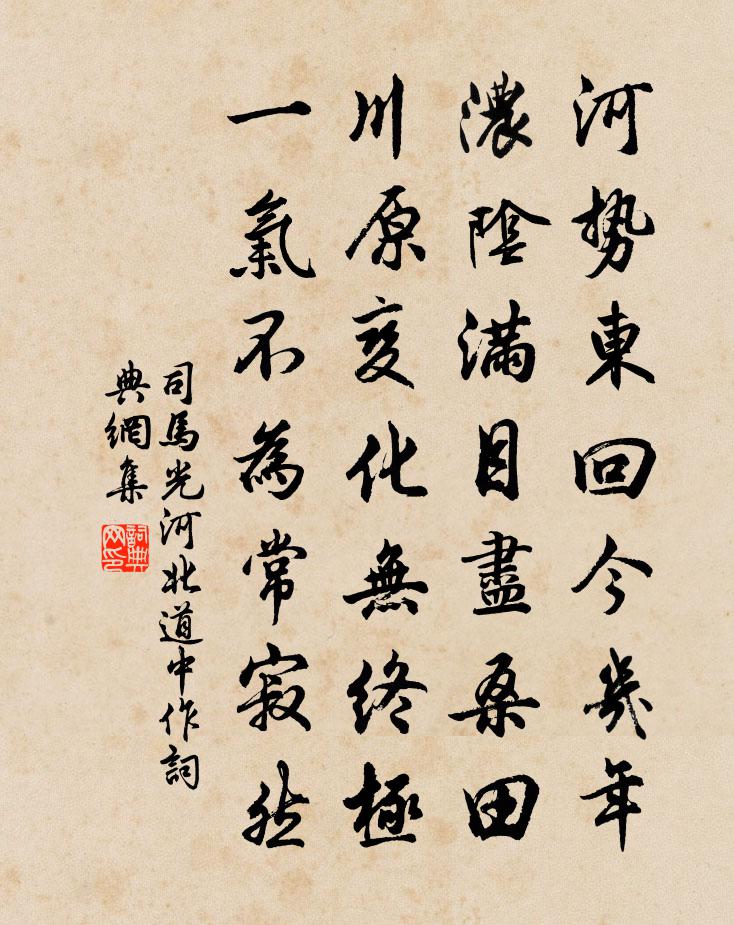 河勢東回今幾年
濃陰滿目盡桑田
川原變化無終極
一氣不為常寂然
司馬光河北道中作詞
典網集
詞典
网印